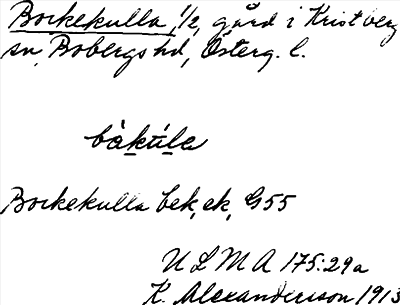 Bockekulla, 1/2, gård i Kristberg
sn, Bobergs hd, Österg. l.
bàkúla
Bockekulla bek, ek, G55
ULMA 175:29a
K. Alexanderson 1913